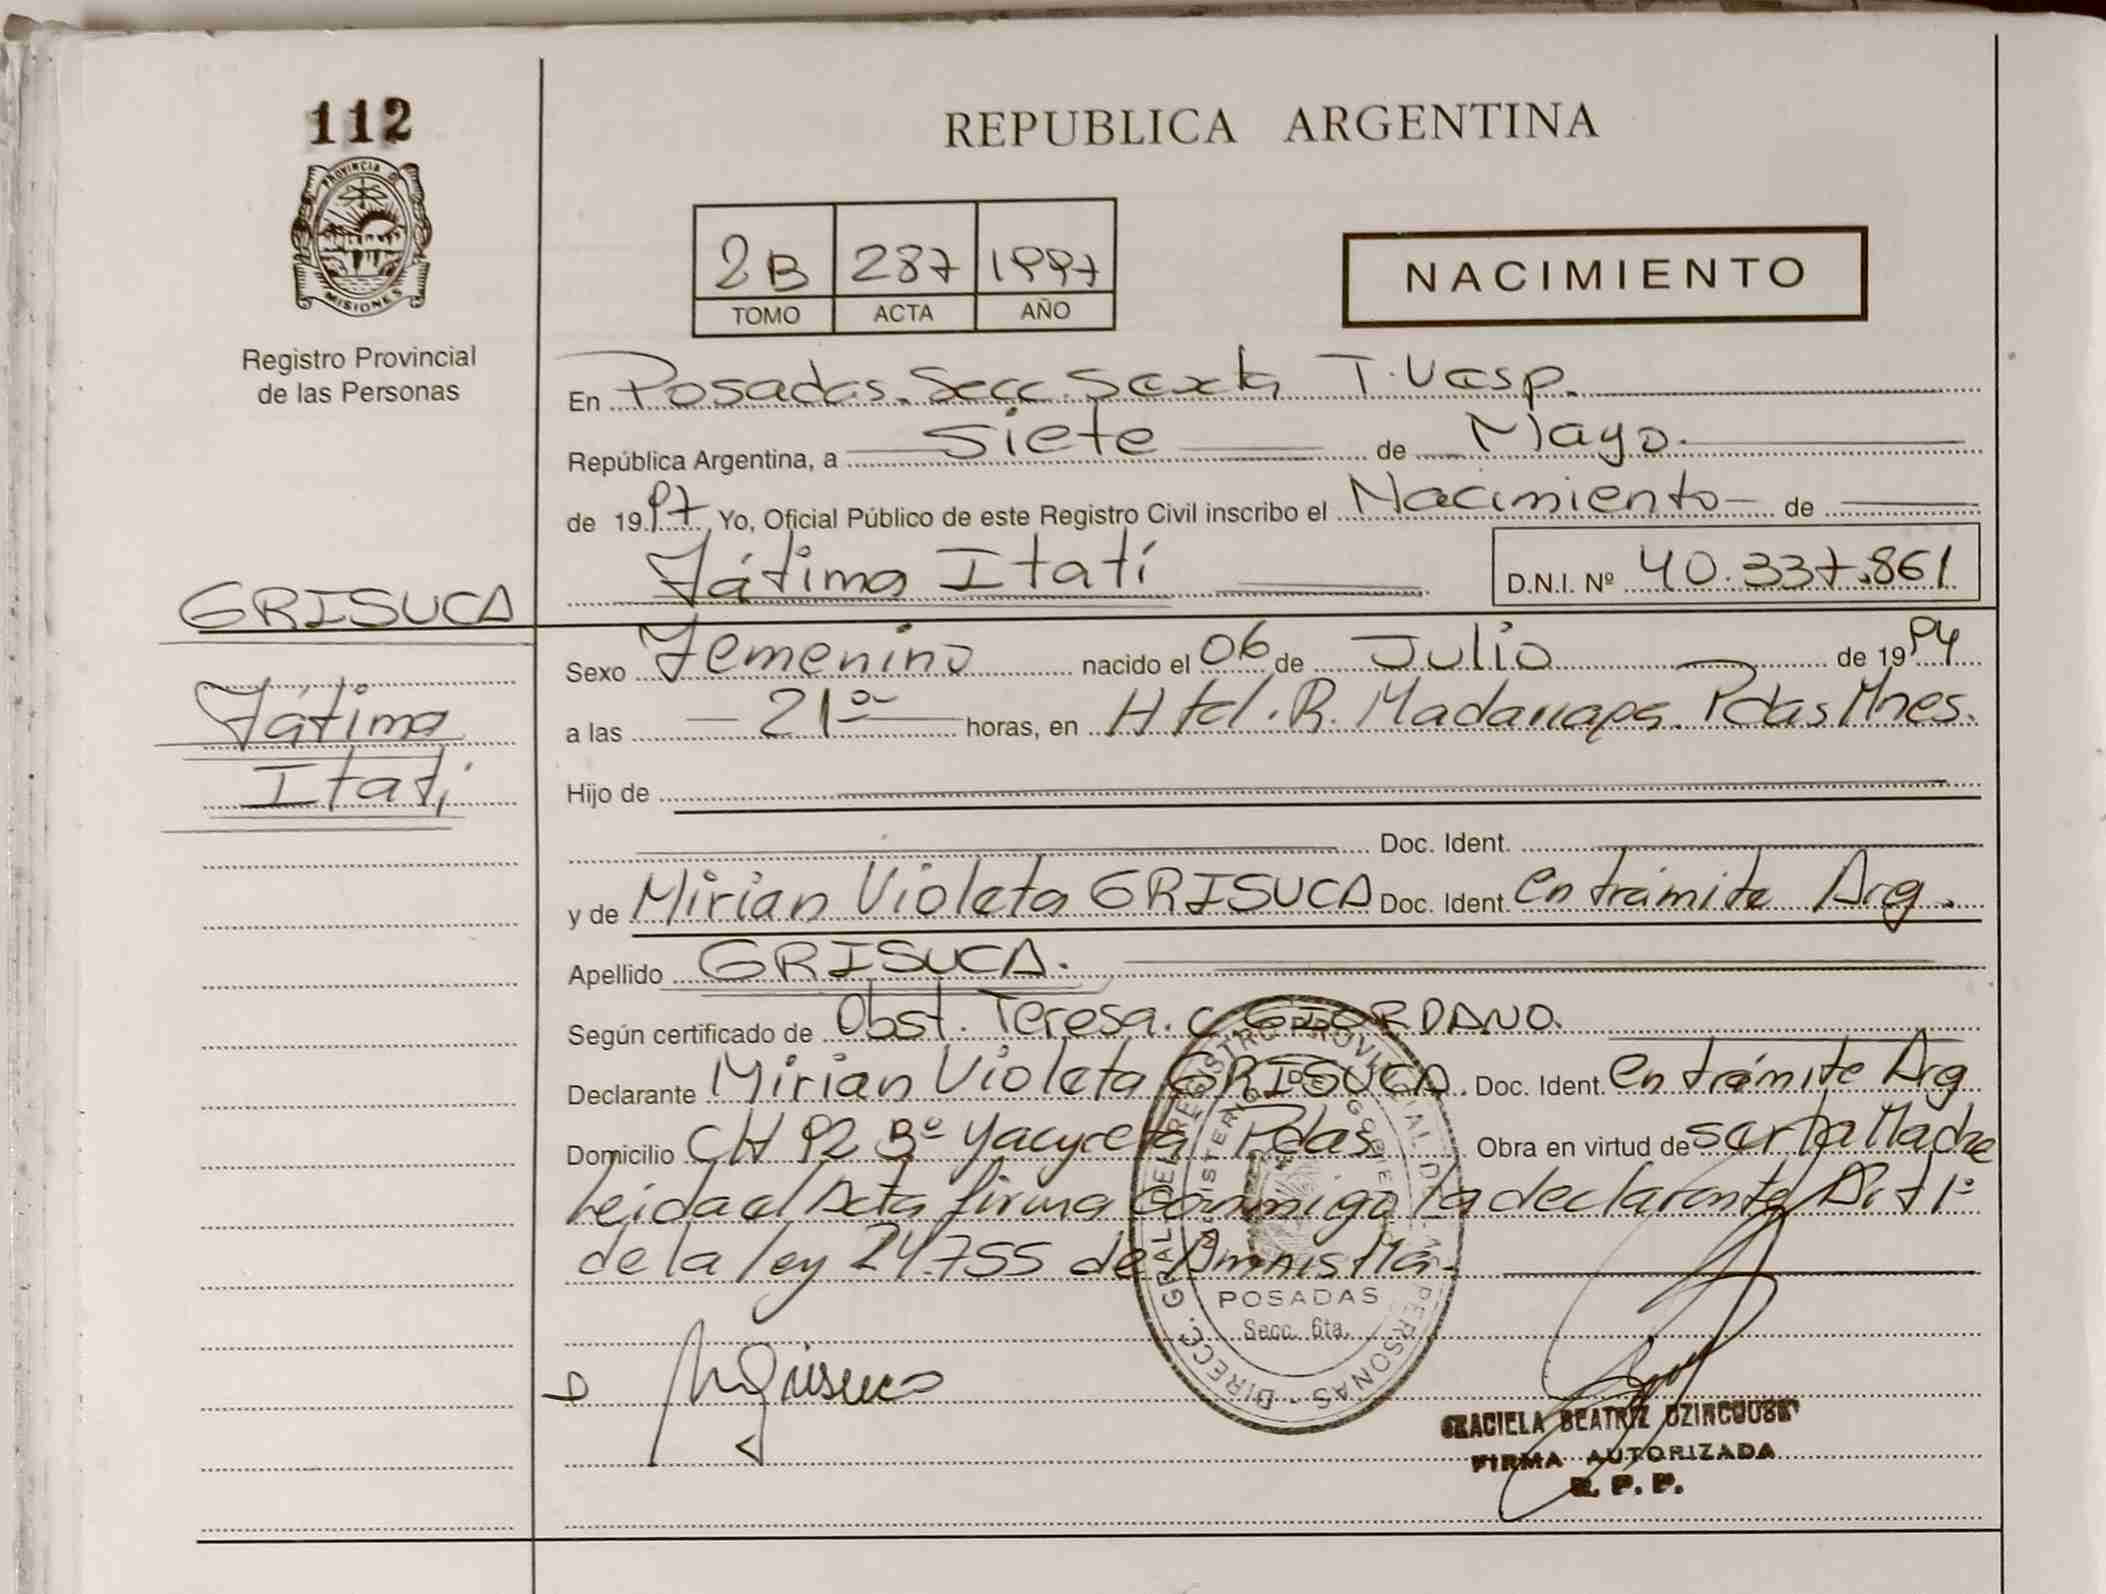 112
PROVINCIA DE
MISIONES
Registro Provincial
de las Personas
GRISUCA
Fátima
Itatí
REPUBLICA ARGENTINA
2B 287 1997
TOMO ACTA AÑO
NACIMIENTO
En Posadas. Secc. Sexta T. Vesp.
República Argentina, a siete de Mayo.
de 1997 Yo, Oficial Público de este Registro Civil inscribo el Nacimiento de
Fátima Itatí D.N.I. Nº 40.337.861
Sexo Femenino nacido el 06 de Julio de 1994
a las 21ºº horas, en Htal. R. Madariaga. Pdas Mnes.
Hijo de
Doc. Ident.
y de Mirian Violeta GRISUCA Doc. Ident. en trámite Arg.
Apellido GRISUCA.
Según certificado de Obst. Teresa. C. GIORDANO.
Declarante Mirian Violeta GRISUCA. Doc. Ident. en trámite Arg
Domicilio CH 92 Bº Yacyreta Pdas. Obra en virtud de ser la Madre
Leida el Acta firma conmigo la declarante Art 1º
de la ley 24.755 de Amnistía.
DIRECC. GRAL DEL REGISTRO PROVINCIAL DE LAS PERSONAS
MINISTERIO DE GOBIERNO
POSADAS
Secc. 6ta.
GRACIELA BEATRIZ
FIRMA AUTORIZADA
R. P. P.